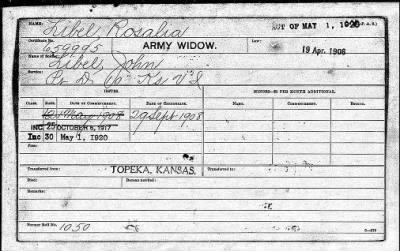 NAME: Zibel, Rosalia ACT OF MAY 1, 1920
Certificate No. 659995 ARMY WIDOW. Law: 19 Apr. 1908
Name of Soldier: Zibel, John
Service: Pt D 6" Ks. V S
ISSUES. MINORS—$2 PER MONTH ADDITIONAL.
CLASS. RATE. DATE OF COMMENCEMENT. DATE OF CERTIFICATE. NAME. DATE OF COMMENCEMENT.
12 1 May 1908 29 Sept 1908
INC. 25 OCTOBER 6, 1917
Inc 30 May 1, 1920
Transferred from TOPEKA, KANSAS. Transferred to
Died: Bureau notified:
Remarks:
Former Roll No. 1050